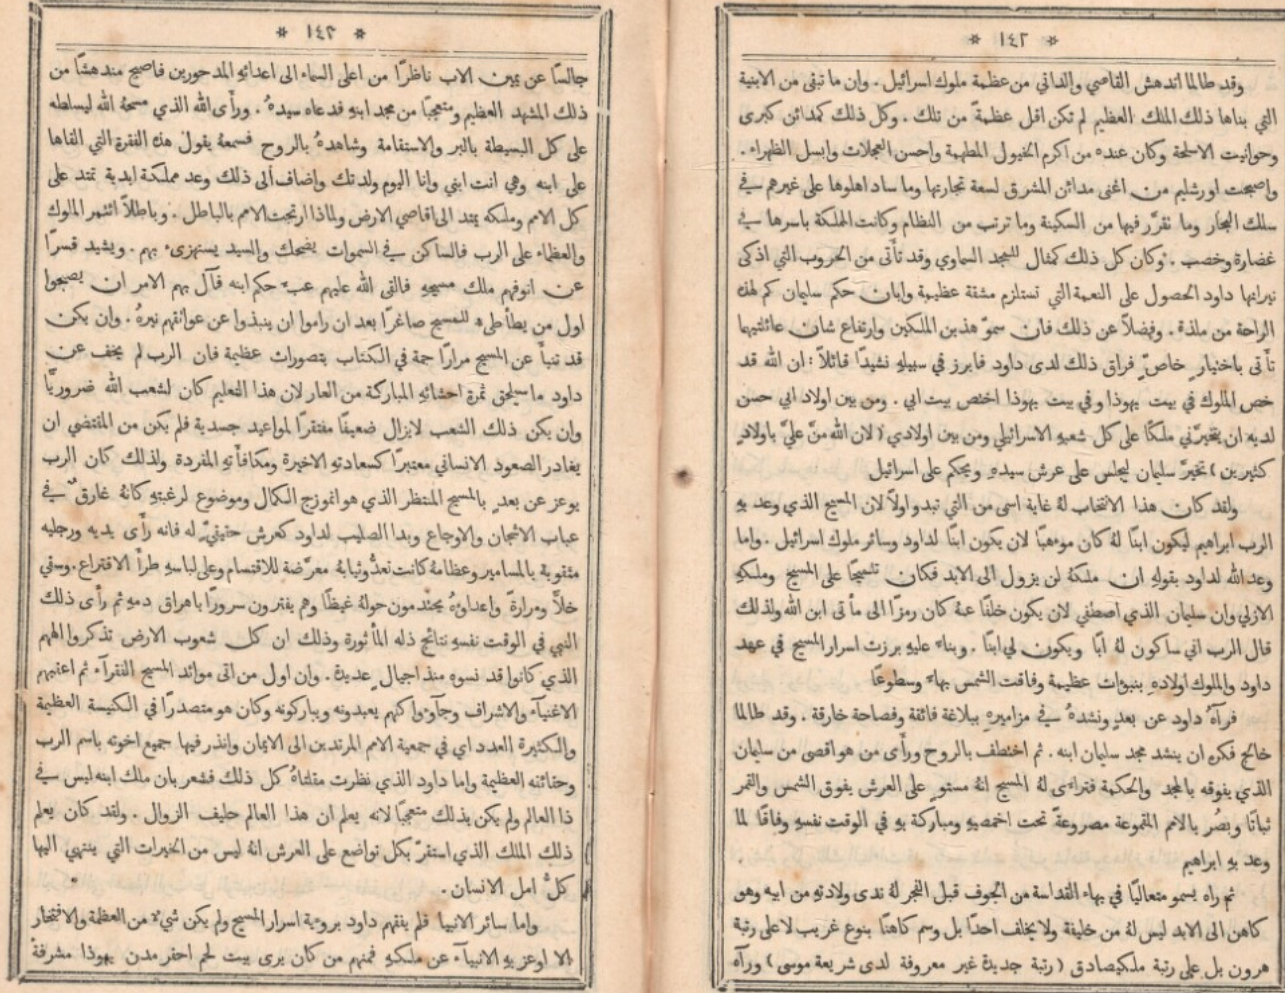 * ١٤٢ *
وقد طالما اندهش القاصي والداني من عظمة ملوك اسرائيل . وان ما تبقى من الابنية
التي بناها ذلك الملك العظيم لم تكن اقل عظمةً من تلك . وكل ذلك كمدائن كبرى
وحوانيت الاسلحة وكان عنده من آكرم الخيول المطهمة واحسن العجلات وابسل الظهراء .
واصبحت اورشليم من اغنى مدائن المشرق لسعة تجارتها وما ساد اهلوها على غيرهم في
سلك البحار وما تقرَّر فيها من السكينة وما ترتب من النظام وكانت المملكة باسرها في
غضارة وخصب . وكان كل ذلك كمثال للمجد السماوي وقد تأتى من الحروب التي اذكى
نيرانها داود الحصول على النعمة التي تستلزم مشقة عظيمة وابان حكم سليمان كم لهذه
الراحة من ملذة . وفضلاً عن ذلك فان سموّ هذين الملكين وارتفاع شان عائلتيهما
تأتى باختيارٍ خاصٍّ فراق ذلك لدى داود فابرز في سبيلهِ نشيدًا قائلاً : ان الله قد
خص الملوك في بيت يهوذا وفي بيت يهوذا اختص بيت ابي . ومن بين اولاد ابي حسن
لديهِ ان يتخيرَّني ملكًا على كل شعبهِ الاسرائيلي ومن بين اولادي ( لان الله منَّ عليَّ باولادٍ
كثيرين ) تخيرَّ سليمان ليجلس على عرش سيدهِ ويحكم على اسرائيل
ولقد كان هذا الانتخاب لهُ غاية اسمى من التي تبدو اولاً لان المسيح الذي وعد بهِ
الرب ابراهيم ليكون ابنًا لهُ كان موءهبًا لان يكون ابنًا لداود وسائر ملوك اسرائيل . واما
وعد الله لداود بقولهِ ان ملكهُ لن يزول الى الابد فكان تلميحًا على المسيح وملكهِ
الازلي وان سليمان الذي اصطفي لان يكون خلفًا عنهُ كان رمزًا الى مأتى ابن الله ولذلك
قال الرب اني ساكون لهُ ابًا ويكون لي ابنًا . وبناءً عليهِ برزت اسرار المسيح في عهد
داود والملوك اولادهِ بنبوءات عظيمة وفاقت الشمس بهاءً وسطوعًا
فرآهُ داود عن بعدٍ ونشدهُ في مزاميرهِ ببلاغة فائقة وفصاحة خارقة . وقد طالما
خالج فكره ان ينشد مجد سليمان ابنه . ثم اختطف بالروح ورأَى من هو اقصى من سليمان
الذي يفوقه بالمجد والحكمة فتراءى لهُ المسيح انهُ مستوٍ على العرش يفوق الشمس والقمر
ثباتًا وبصُر بالامم المقموعة مصروعةً تحت اخمصيهِ ومباركة بهِ في الوقت نفسهِ وفاقًا لما
وعد بهِ ابراهيم
ثم راه يسمو متعاليًا في بهاء القداسة من الجوف قبل الفجر لهُ ندى ولادتهِ من ابيه وهو
كاهن الى الابد ليس لهُ من خليفة ولا يخلف احدًا بل وسم كاهنًا بنوع غريب لا على رتبة
هرون بل على رتبة ملكيصادق ( رتبة جديدة غير معروفة لدى شريعة موسى ) ورآه
* ١٤٣ *
جالسًا عن يمين الاب ناظرًا من اعلى السماء الى اعدائهِ المدحورين فاصبح مندهشًا من
ذلك المشهد العظيم ومتعجبًا من مجد ابنهِ فدعاه سيدهُ . ورأَى الله الذي مسحهُ الله ليسلطه
على كل البسيطة بالبر والاستقامة وشاهدهُ بالروح فسمعهُ يقول هذه الفقرة التي القاها
على ابنه وهي انت ابني وانا اليوم ولدتك واضاف الى ذلك وعد مملكة ابدية تمتد على
كل الامم وملكه يمتد الى اقاصي الارض ولماذا ارتجت الامم بالباطل . وباطلاً ائتمر الملوك
والعظماء على الرب فالساكن في السموات يضحك والسيد يستهزىء بهم . ويشيد قسرًا
عن انوفهم ملك مسيحهِ فالقى الله عليهم عبء حكم ابنه فآل بهم الامر ان يصبحوا
اول من يطأطىء للمسيح صاغرًا بعد ان راموا ان ينبذوا عن عواتقهم نيرهُ . وان يكن
قد تنبأَ عن المسيح مرارًا جمة في الكتاب بتصورات عظيمة فان الرب لم يخف عن
داود ما سيلحق ثمرة احشائهِ المباركة من العار لان هذا التعليم كان لشعب الله ضروريًّا
وان يكن ذلك الشعب لايزال ضعيفًا مفتقرًا لمواعيد جسدية فلم يكن من المقتضي ان
يغادر الصعود الانساني معتبرًا كسعادتهِ الاخيرة ومكافأتهِ المفردة ولذلك كان الرب
يوعز عن بعدٍ بالمسيح المنتظر الذي هو انموزج الكمال وموضوع لرغبتهِ كانهُ غارقٌ في
عباب الاشجان والاوجاع وبدا الصليب لداود كعرش حقيقيٍّ له فانه رأَى يديه ورجليه
مثقوبة بالمسامير وعظامهُ كانت تعدُّ وثيابهُ معرَّضة للاقتسام وعلى لباسهِ طرأَ الاقتراع . وسقي
خلاًّ ومرارةً واعداؤهُ يحتدمون حولهُ غيظًا وهم يفترون سرورًا باهراق دمهِ ثم رأَى ذلك
النبي في الوقت نفسهِ نتائج ذله المأثورة وذلك ان كل شعوب الارض تذكروا الههم
الذي كانوا قد نسوه منذ اجيالٍ عديدة . وان اول من اتى موائد المسيح الفقرآء ثم اعقبهم
الاغنيآء والاشراف وجآءوا كلهم يعبدونه ويباركونه وكان هو متصدرًا في الكنيسة العظيمة
والكثيرة العدد اي في جمعية الامم المرتدين الى الايمان وانذر فيها جميع اخوته باسم الرب
وحقائقه العظيمة واما داود الذي نظرت مقلتاهُ كل ذلك فشعر بان ملك ابنه ليس في
ذا العالم ولم يكن بذلك متعجبًا لانه يعلم ان هذا العالم حليف الزوال . ولقد كان يعلم
ذلك الملك الذي استقرَّ بكل تواضع على العرش انهُ ليس من الخيرات التي ينتهي اليها
كلُّ امل الانسان .
واما سائر الانبيا فلم يفتهم داود بروءية اسرار المسيح ولم يكن شيءٌ من العظمة والافتخار
الا اوعز بهِ الانبيآء عن ملكهِ فمنهم من كان يرى بيت لحم احقر مدن يهوذا مشرفةً